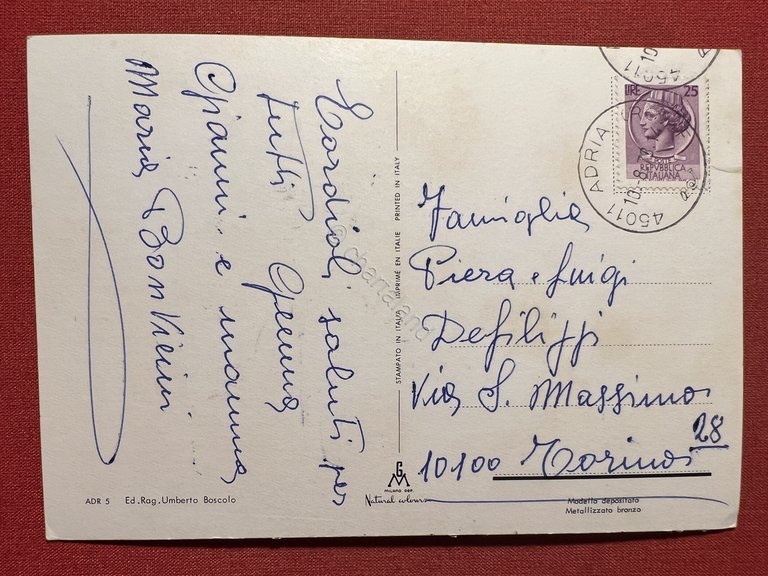 Cordiali saluti per
tutti Gemma
Gianni e mamma
Maria Bonvicini
LIRE 25
REPUBBLICA
ITALIANA
45011 ADRIA
10-8
45011
10
STAMPATO IN ITALIA IMPRIMÉ EN ITALIE PRINTED IN ITALY
© chartaland
Famiglia
Piera e Luigi
Defilippi
Via S. Massimo
28
10100 Torino
ADR 5 Ed. Rag. Umberto Boscolo
GM
MILANO DEP.
Natural colours
Modello depositato
Metallizzato bronzo